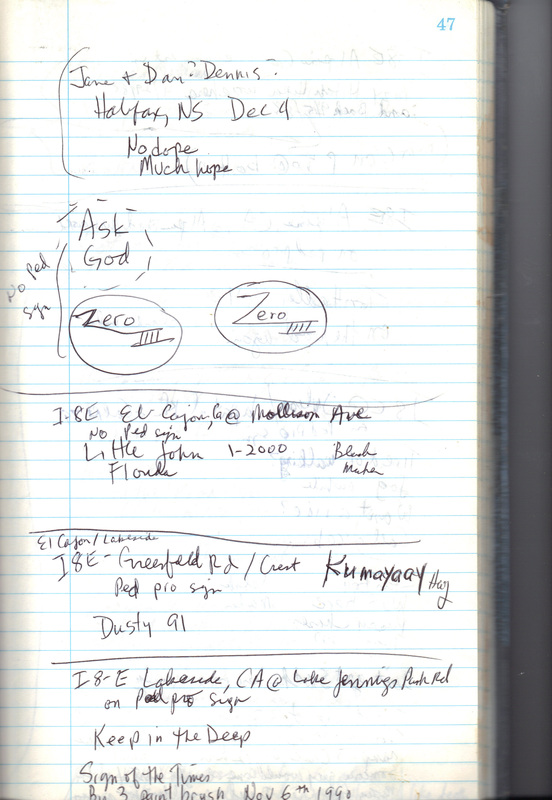 47
Jane + Dan? Dennis -
Halifax, NS Dec 4
No dope
Much hope
Ask
God
No ped
sign
Zero
Zero
I-8E El Cajon, Ca @ Mollison Ave
No Ped sign
Little John 1-2000
Florida
El Cajon/Lakeside
I8E - Greenfield Rd / Crest Kumayaay Hwy
Ped pro sign
Dusty 91
I8-E Lakeside, CA @ Lake Jennings Park Rd
on Ped pro sign
Keep in the Deep
Sign of the Times
By 3 paint brush Nov 6th 1990